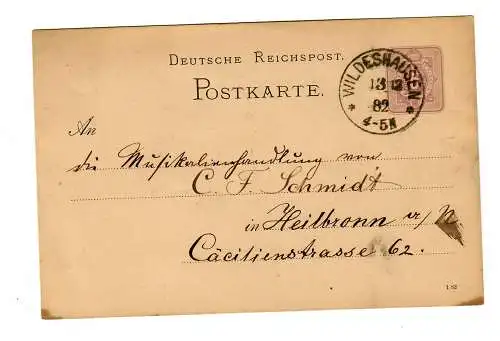 DEUTSCHE REICHSPOST.
POSTKARTE.
WILDESHAUSEN
13 12
82
4-5N
An
die Musikalienhandlung von
C. F. Schmidt
in Heilbronn a/N.
Cäcilienstrasse 62.
1 82